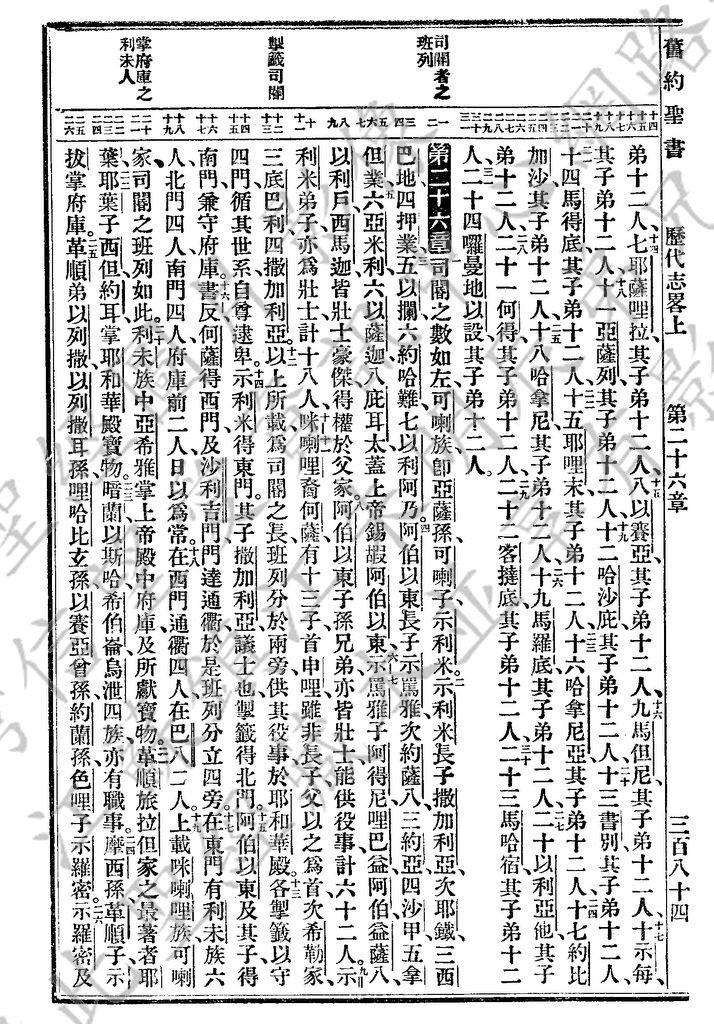 舊約聖書 歷代志畧上 第二十六章 三百八十四
弟十二人七耶薩哩拉其子弟十二人八以賽亞其子弟十二人九馬但尼其子弟十二人十示每
其子弟十二人十一亞薩列其子弟十二人十二哈沙庇其子弟十二人十三書別其子弟十二人
十四馬得底其子弟十二人十五耶哩末其子弟十二人十六哈拿尼亞其子弟十二人十七約比
加沙其子弟十二人十八哈拿尼其子弟十二人十九馬羅底其子弟十二人二十以利亞他其子
弟十二人二十一何得其子弟十二人二十二客撻底其子弟十二人二十三馬哈宿其子弟十二
人二十四囉曼地以設其子弟十二人
第二十六章司閽之數如左可喇族卽亞薩孫可喇子示利米示利米長子撒加利亞次耶鐵三西
巴地四押業五以攔六約哈難七以利阿乃阿伯以東長子示罵雅次約薩八三約亞四沙甲五拿
但業六亞米利六以薩迦八庇耳太蓋上帝錫嘏阿伯以東示罵雅子阿得尼哩巴益阿伯益薩八
以利戶西馬迦皆壯士豪傑得權於父家阿伯以東子孫兄弟亦皆壯士能供役事計六十二人示
利米弟子亦爲壯士計十八人咪喇哩裔何薩有十三子首申哩雖非長子父以之爲首次希勒家
三底巴利四撒加利亞以上所載爲司閽之長班列分於兩旁供其役事於耶和華殿各掣籤以守
四門循其世系自尊逮卑示利米得東門其子撒加利亞議士也掣籤得北門阿伯以東及其子得
南門兼守府庫書反何薩得西門及沙利吉門門達通衢於是班列分立四旁在東門有利未族六
人北門四人南門四人府庫前二人日以爲常在西門通衢四人在巴八二人上載咪喇哩族可喇
家司閽之班列如此利未族中亞希雅掌上帝殿中府庫及所獻寶物革順旅拉但家之最著者耶
葉耶葉子西但約耳掌耶和華殿寶物暗蘭以斯哈希伯崙烏泄四族亦有職事摩西孫革順子示
拔掌府庫革順弟以列撒以列撒耳孫哩哈比玄孫以賽亞曾孫約蘭孫色哩子示羅密示羅密及
司閽者之班列
掣籤司閽
掌府庫之利未人